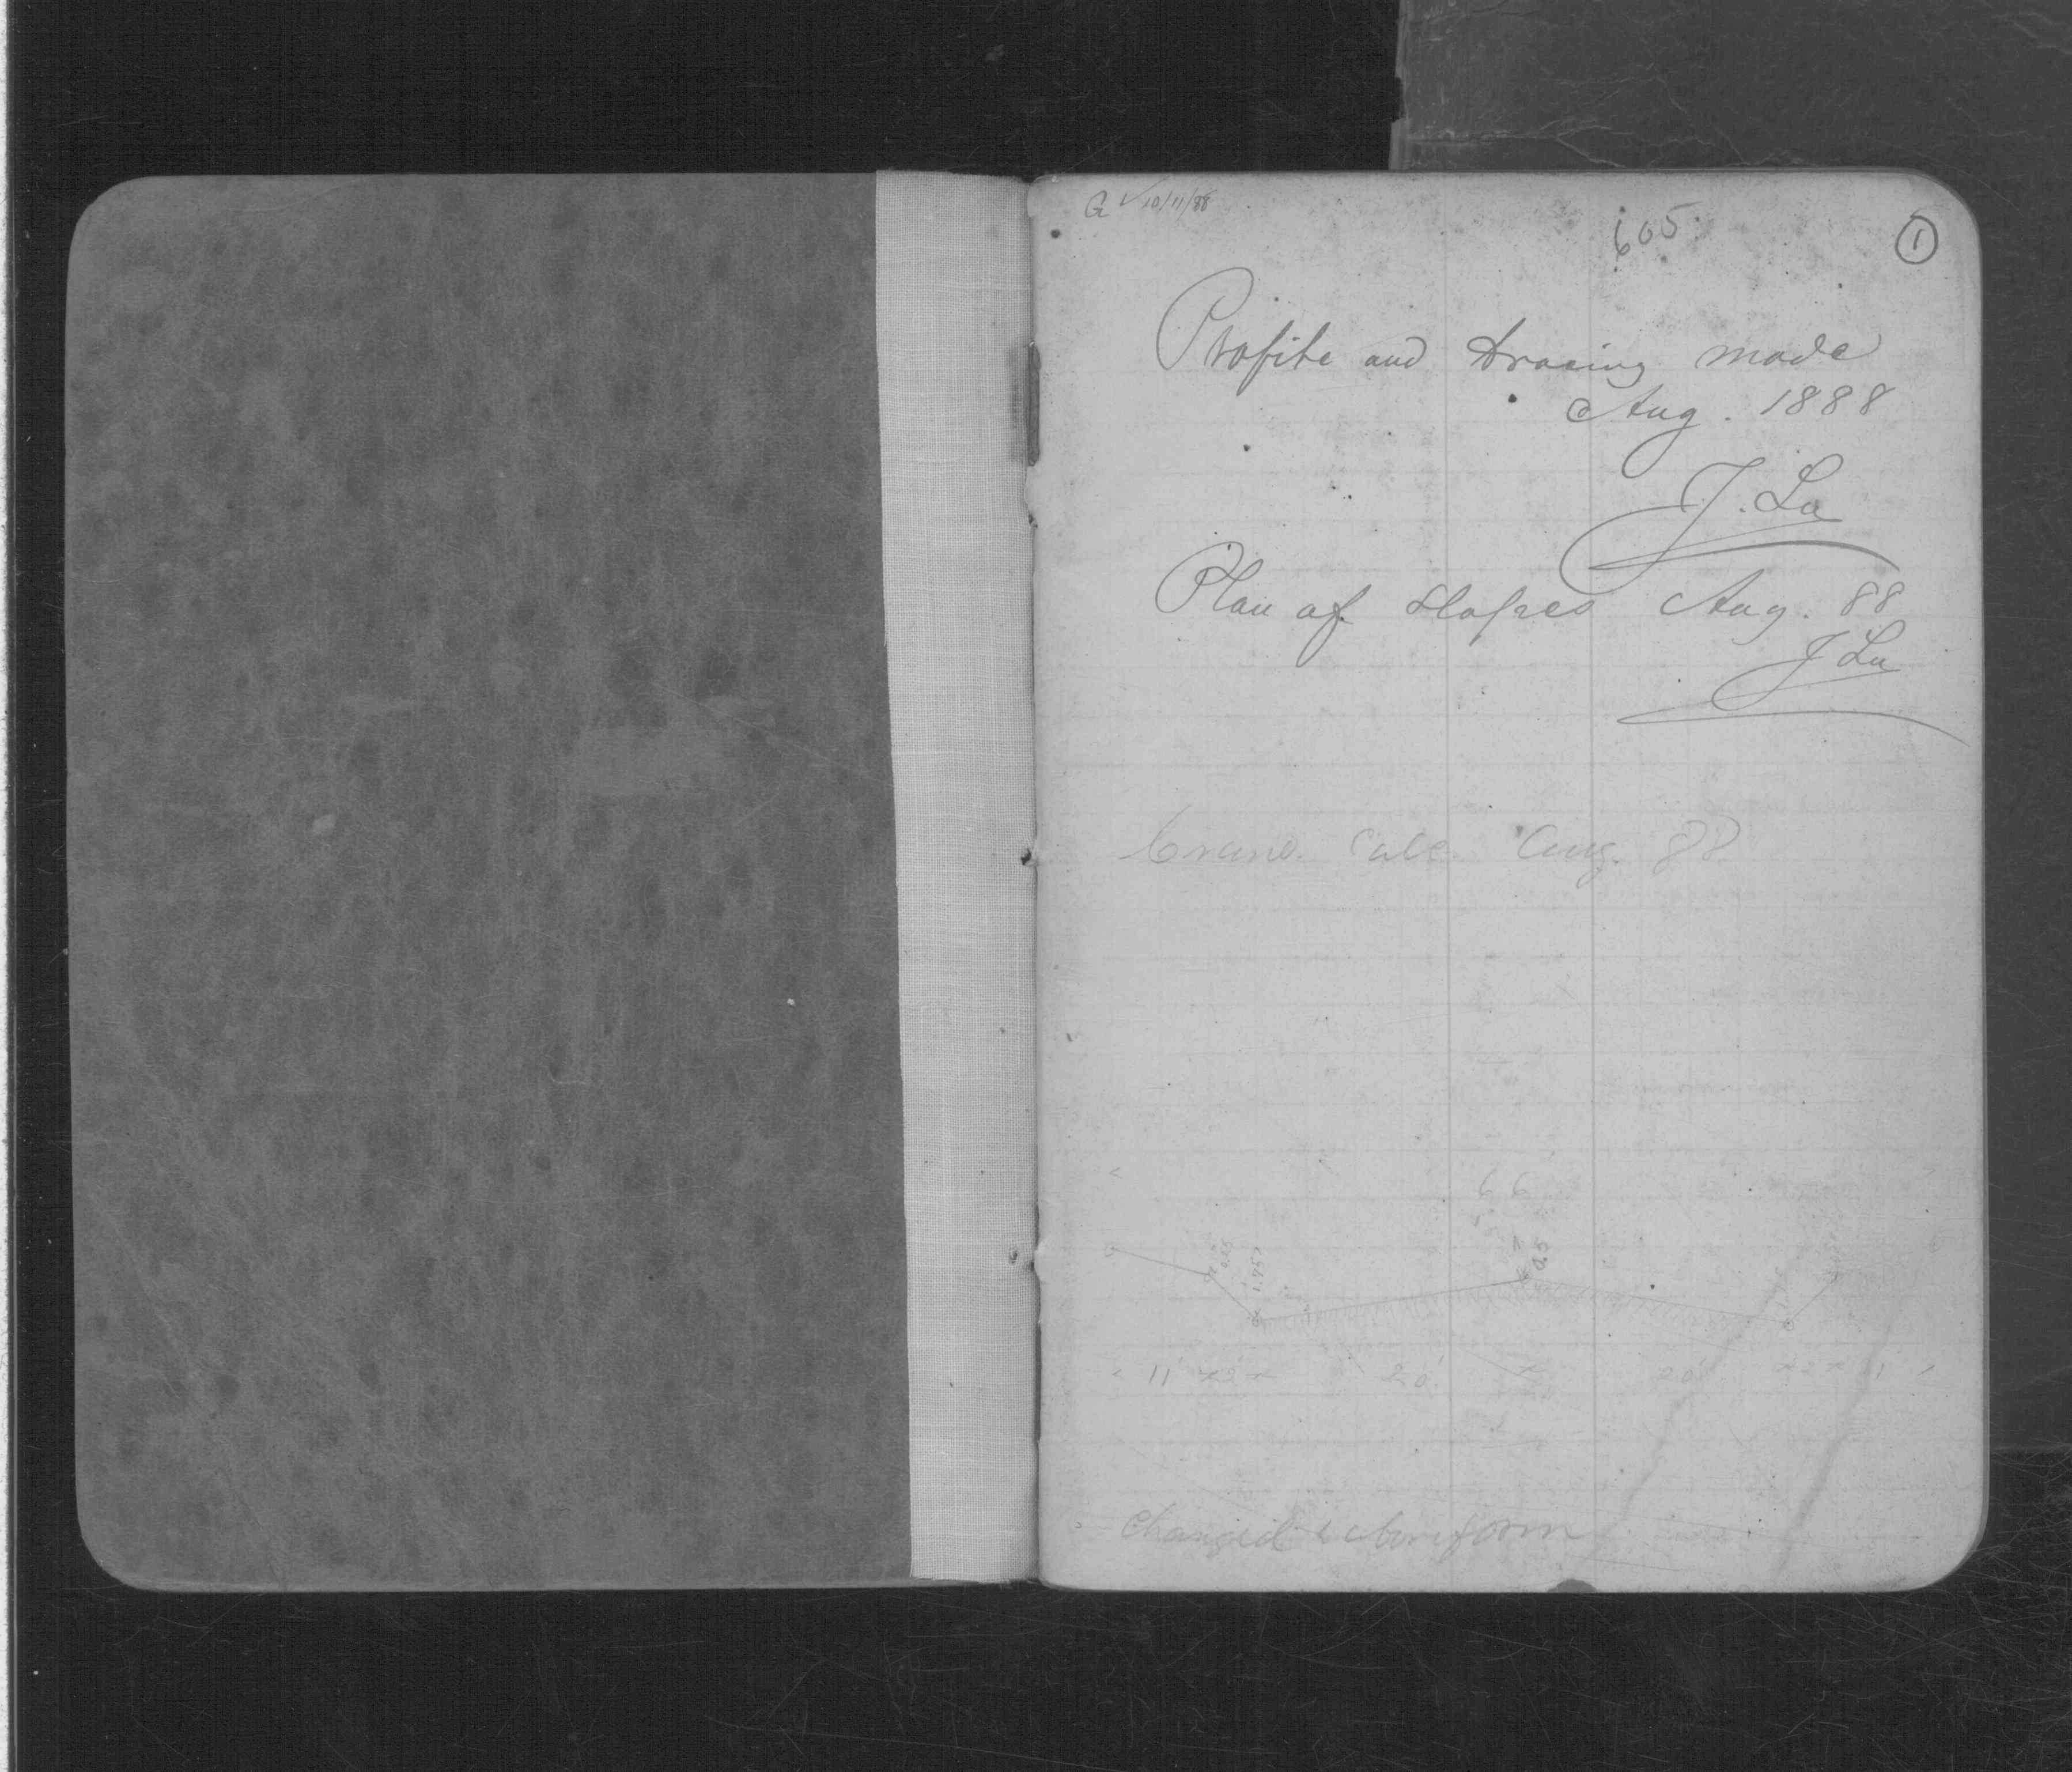 G ✓ 10/11/88
605
1
Profile and tracing made
Aug. 1888
J. La
Plan of slopes Aug. 88
J La
Calc. Aug. 88
66
0.5
11 x 2 x 20' x 20' x 2 x 11
Changed